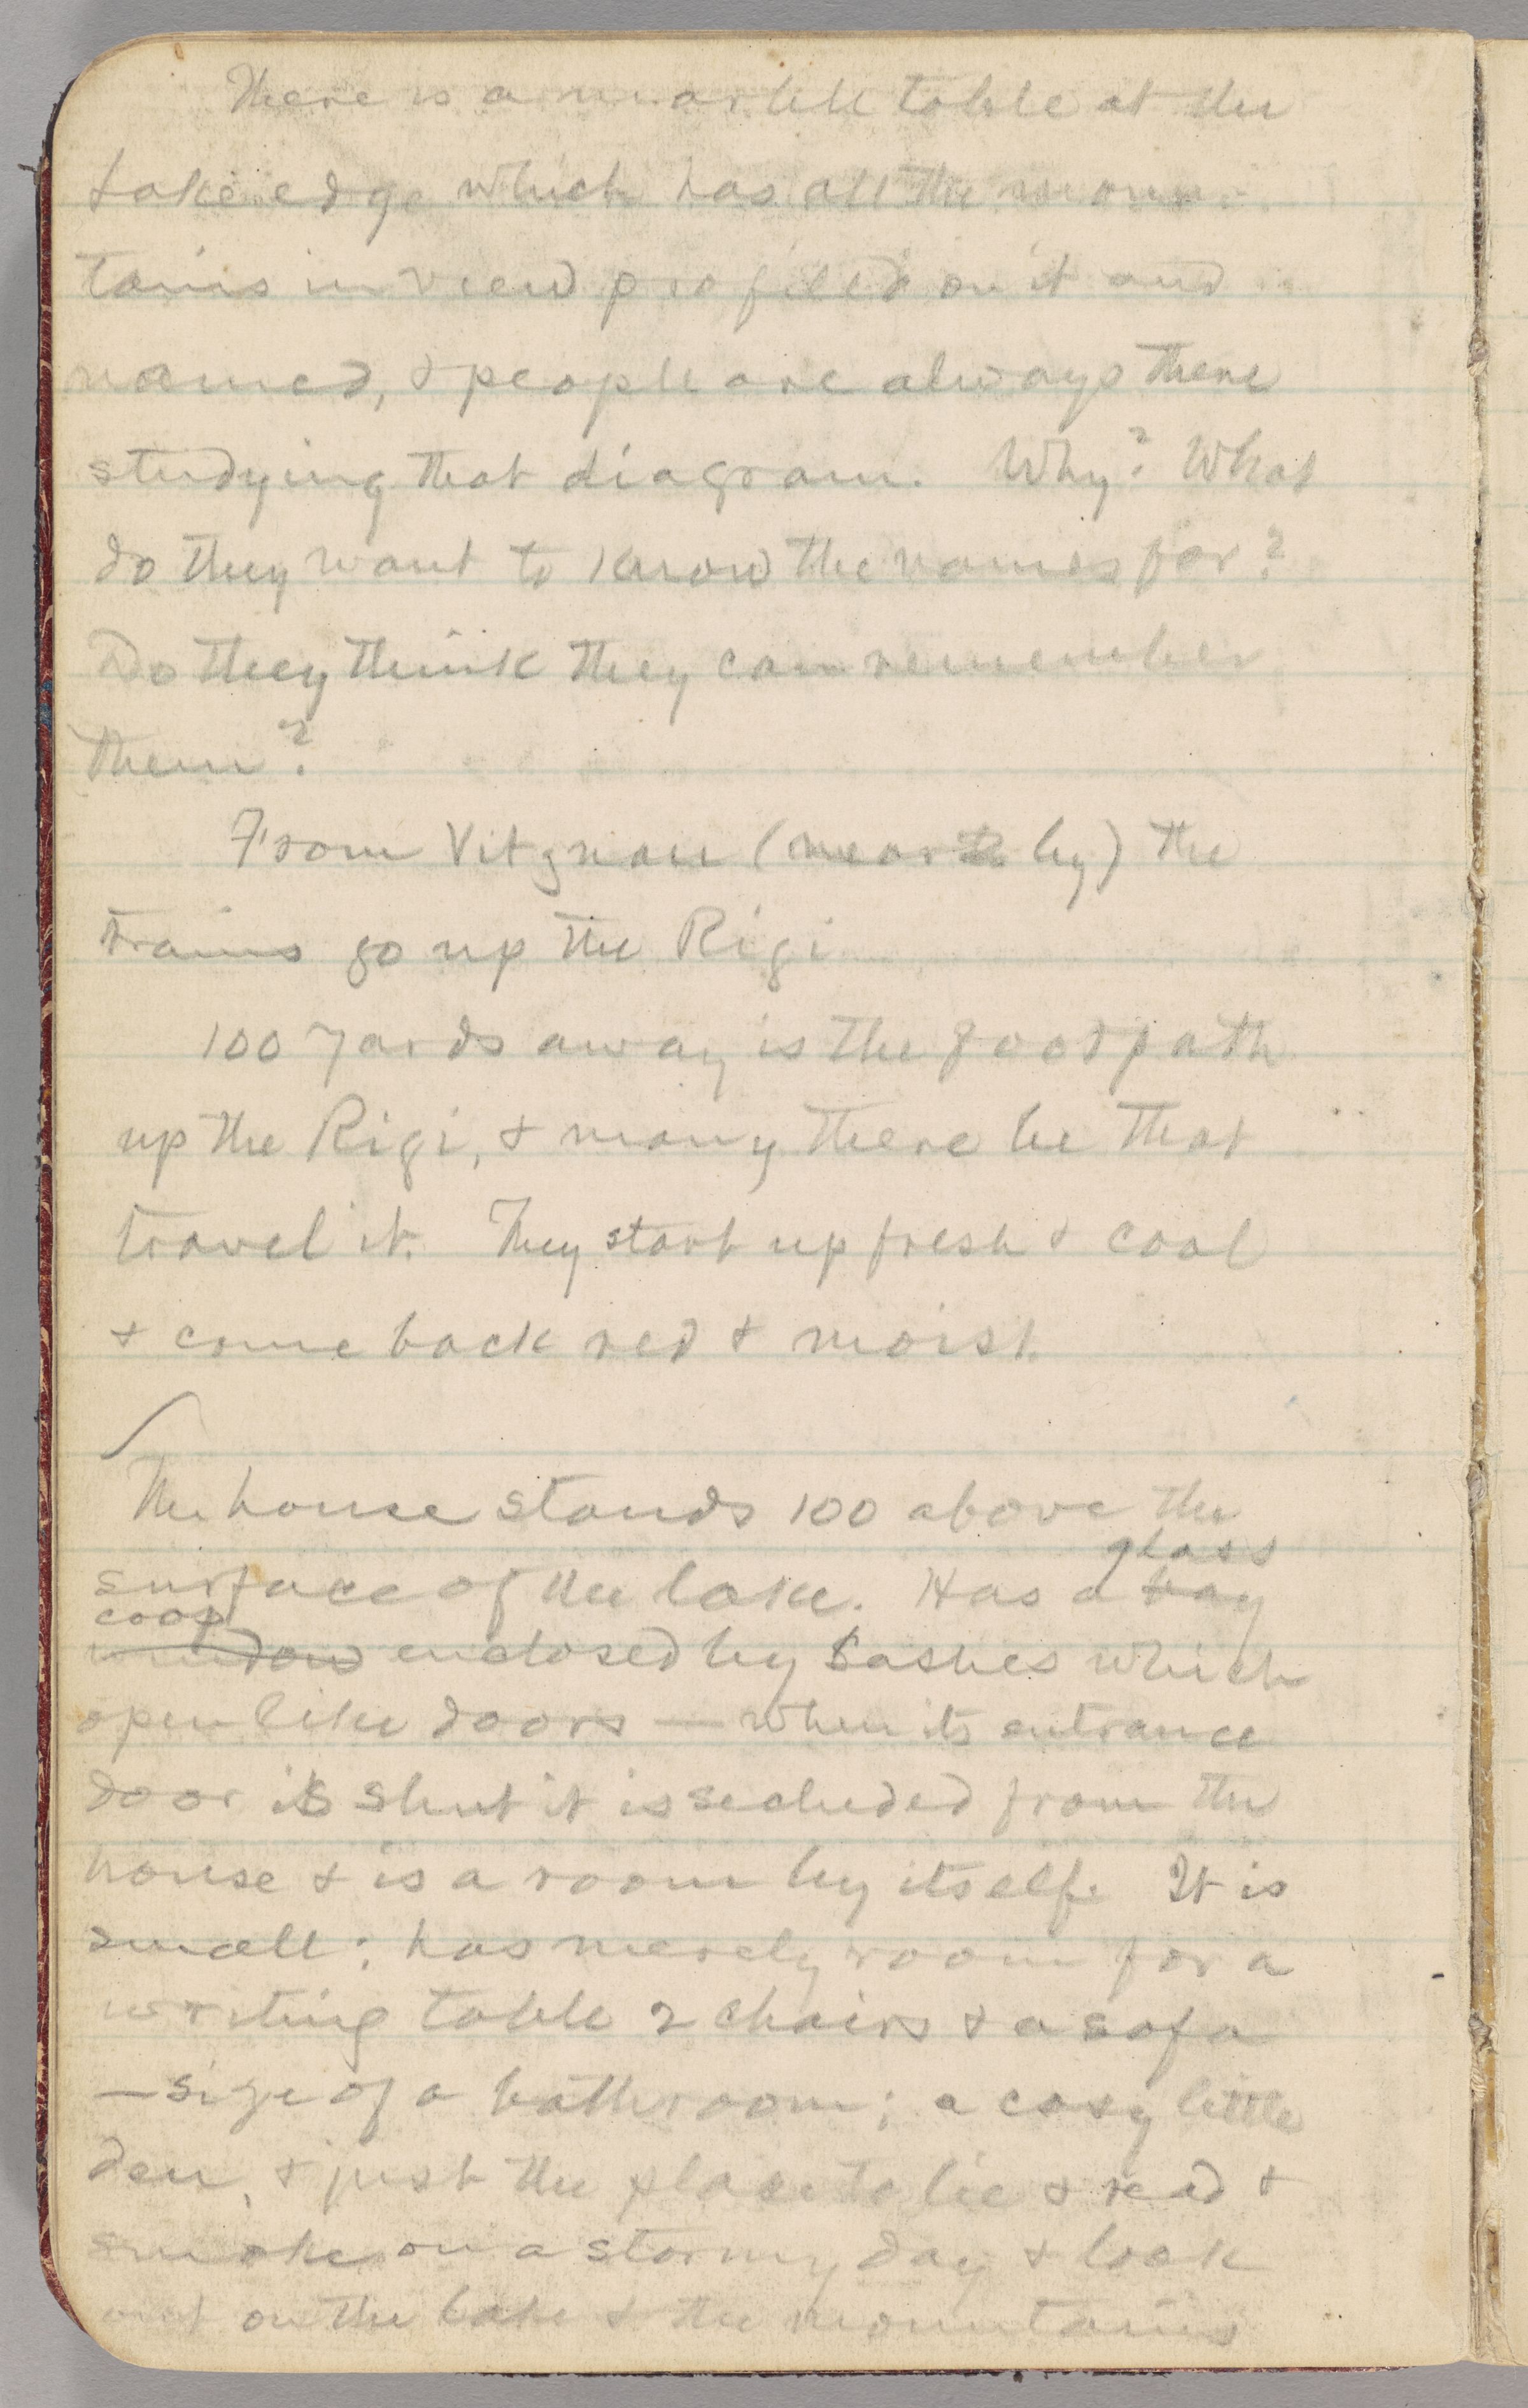 There is a marble table at the
lake edge which has all the moun-
tains in view profiled on it and
named, & people are always there
studying that diagram. Why? What
do they want to know the names for?
Do they think they can remember
them?
From Vitznau (near by) the
trains go up the Rigi
100 yards away is the footpath
up the Rigi, & many there be that
travel it. They start up fresh & cool
& come back red & moist.
The house stands 100 above the
glass
surface of the lake. Has a bay
coop
window enclosed by sashes which
open like doors — when its entrance
door is shut it is secluded from the
house & is a room by itself. It is
small; has merely room for a
writing table 2 chairs & a sofa
—size of a bathroom; a cosy little
den, & just the place to lie & read &
smoke on a stormy day & look
out on the lake & the mountains